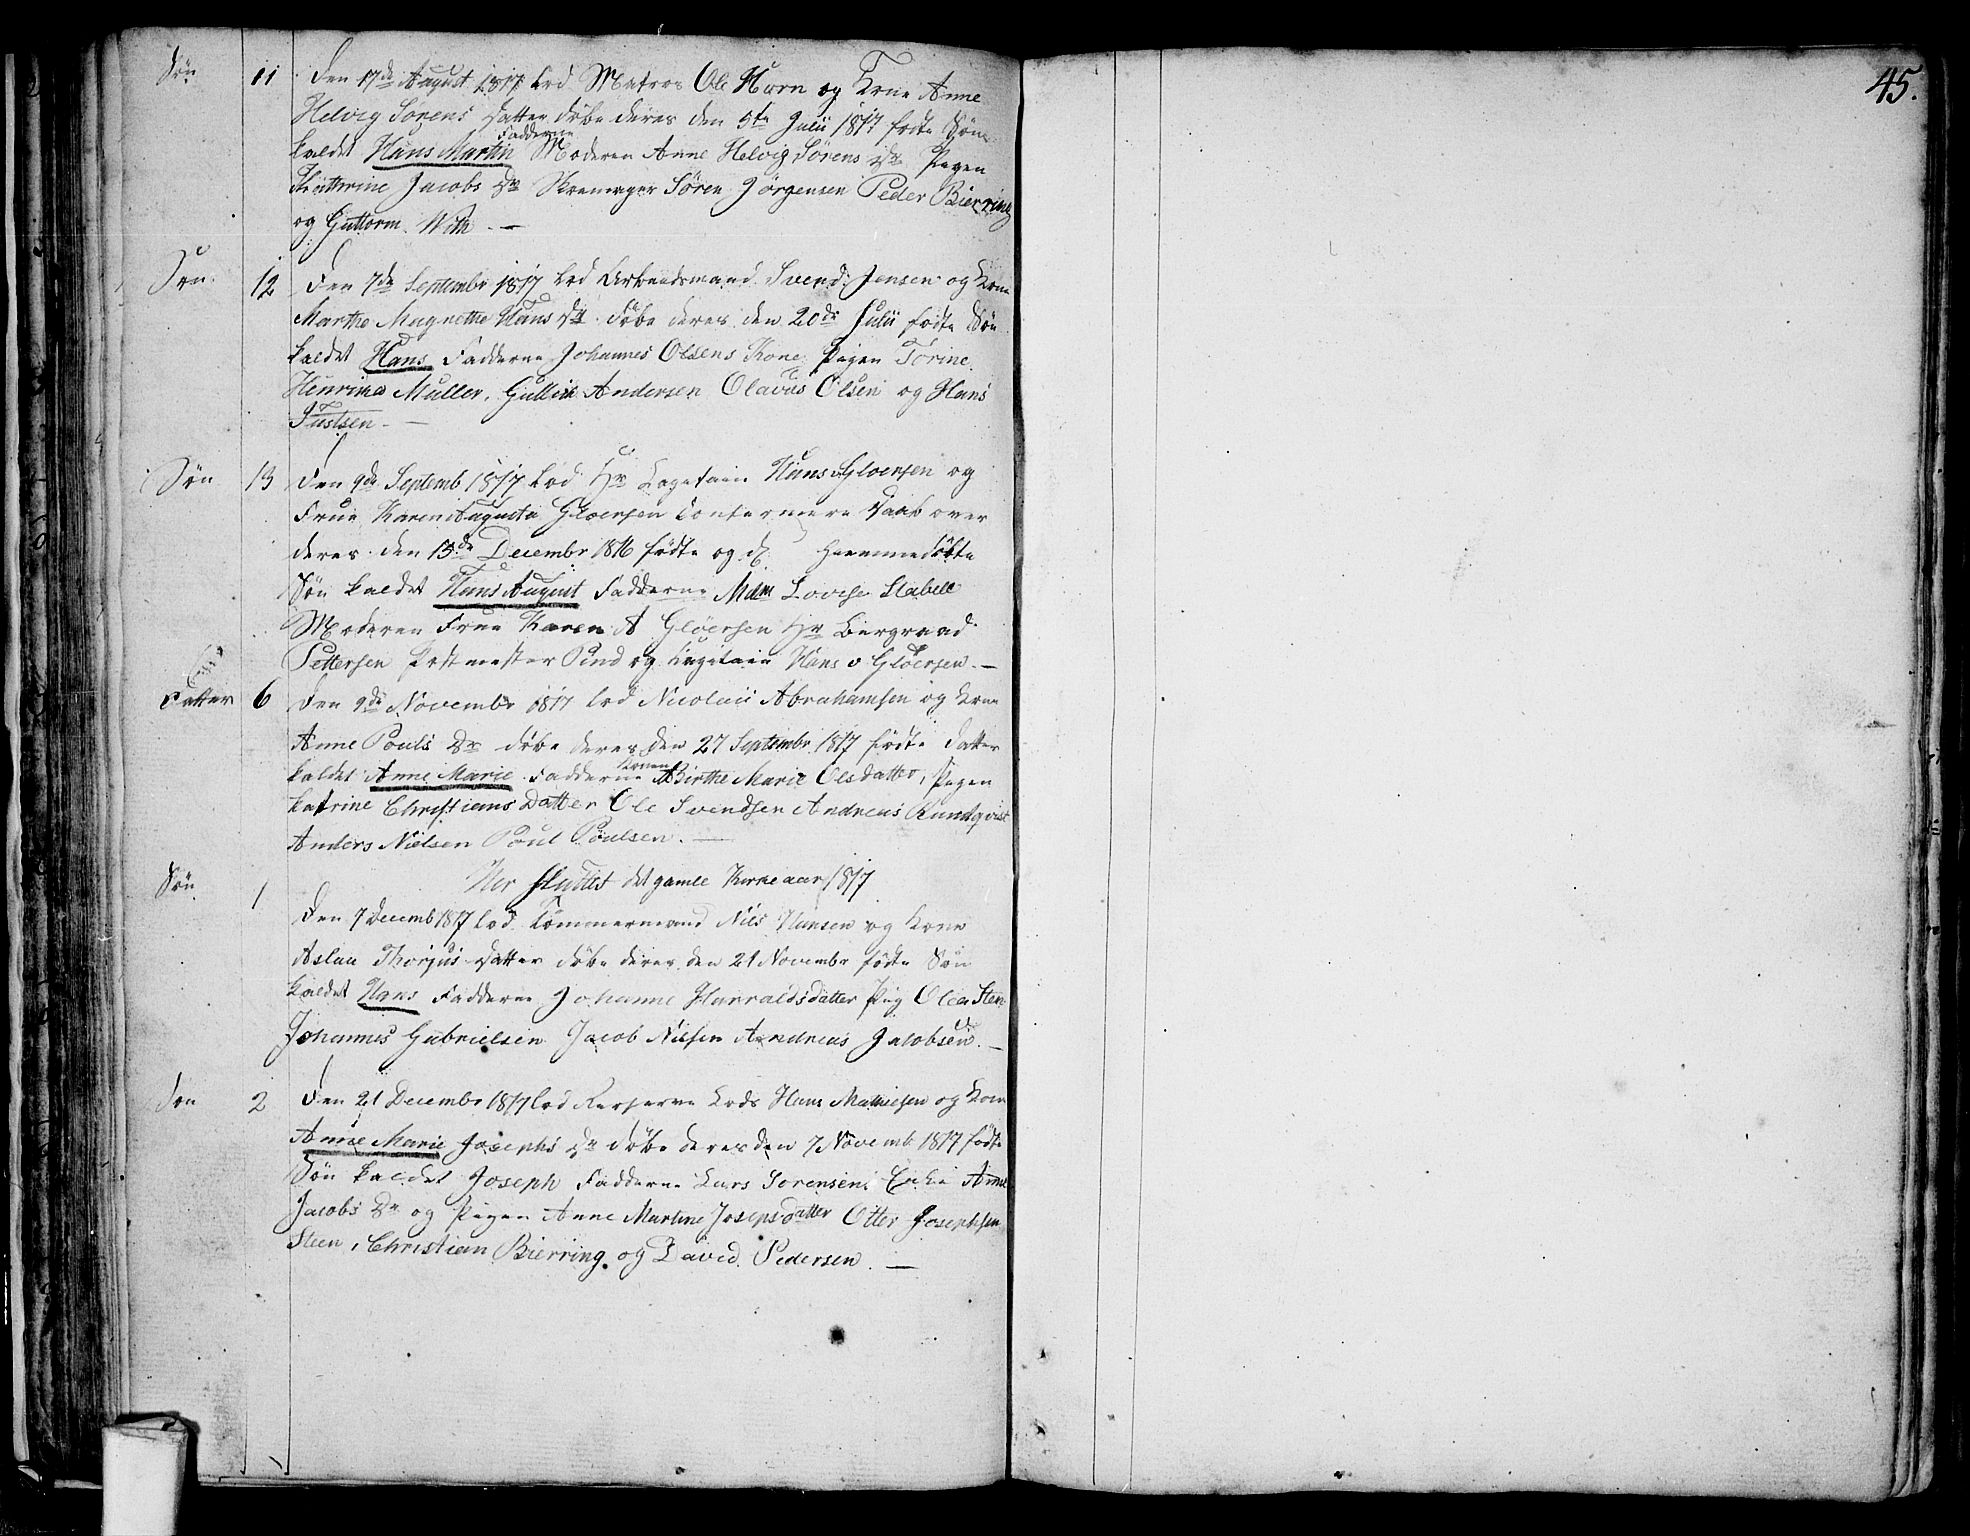 45.
Søn 11 Den 17de August 1817 lod Matros Ole Horn og Kone Anne
Helvig Sørens Datter døbe deres den 5te Julii 1817 fødte Søn
kaldet Hans Martin Fadderne Moderen Anne Helvig Sørens Dr Pigen
Kathrine Jacobs Dr Skomager Søren Jørgensen Peder Bierring
og Guttorm With. —
Søn 12 Den 7de Septembr 1817 lod Arbeidsmand Svend Jensen og Kone
Marthe Magnethe Hans Dr døbe deres den 20de Julii fødte Søn
kaldet Hans Fadderne Johannes Olsens Kone, Pigen Torine
Henrika Muller, Gullik Andersen Olavus Olsen og Hans
Justsen. —
Søn 13 Den 9de Septemb 1817 lod Hr Capitain Hans Gloersen og
Frue Karen Augusta Gloersen Confermere Daab over
deres den 13de Decembr 1816 fødte og d. hiemmedøbte
Søn kaldet Hans August Fadderne Mdm Lovise Stabell
Moderen Frue Karen A Gløersen Hr Bergraad
Pettersen Postmester Pind og Capitain Hans v Gløersen. —
Datter 6 Den 9de Novembr 1817 lod Nicolaii Abrahamsen og Kone
Anne Pouls Dr døbe deres den 27 Septembr 1817 fødte Datter
kaldet Anne Marie Fadderne Konen Birthe Marie Olsdatter, Pigen
Katrine Christians Datter Ole Svendsen Andreas Rundqvist
Anders Nielsen Poul Poulsen. —
Her sluttet det gamle Kirkeaar 1817
Søn 1 Den 7 Decemb 1817 lod Tømmermand Nils Hansen og Kone
Aslau Thorjus Datter døbe deres den 21 Novembr fødte Søn
kaldet Hans Fadderne Johanne Harraldsdatter Pig Olea Sten
Johannes Gabrielsen Jacob Nilsen Andreas Jacobsen. —
Søn 2 Den 21 Decembr 1817 lod Reserve Lods Hans Mathiesen og Kone
Anne Marie Josephs Dr døbe deres den 7 Novemb 1817 fødte
Søn kaldet Joseph Fadderne Lars Sorensens Enke Anne
Jacobs Dr og Pigen Anne Martine Josepsdatter Otter Josephsen
Steen, Christian Bierring og David Pedersen. —